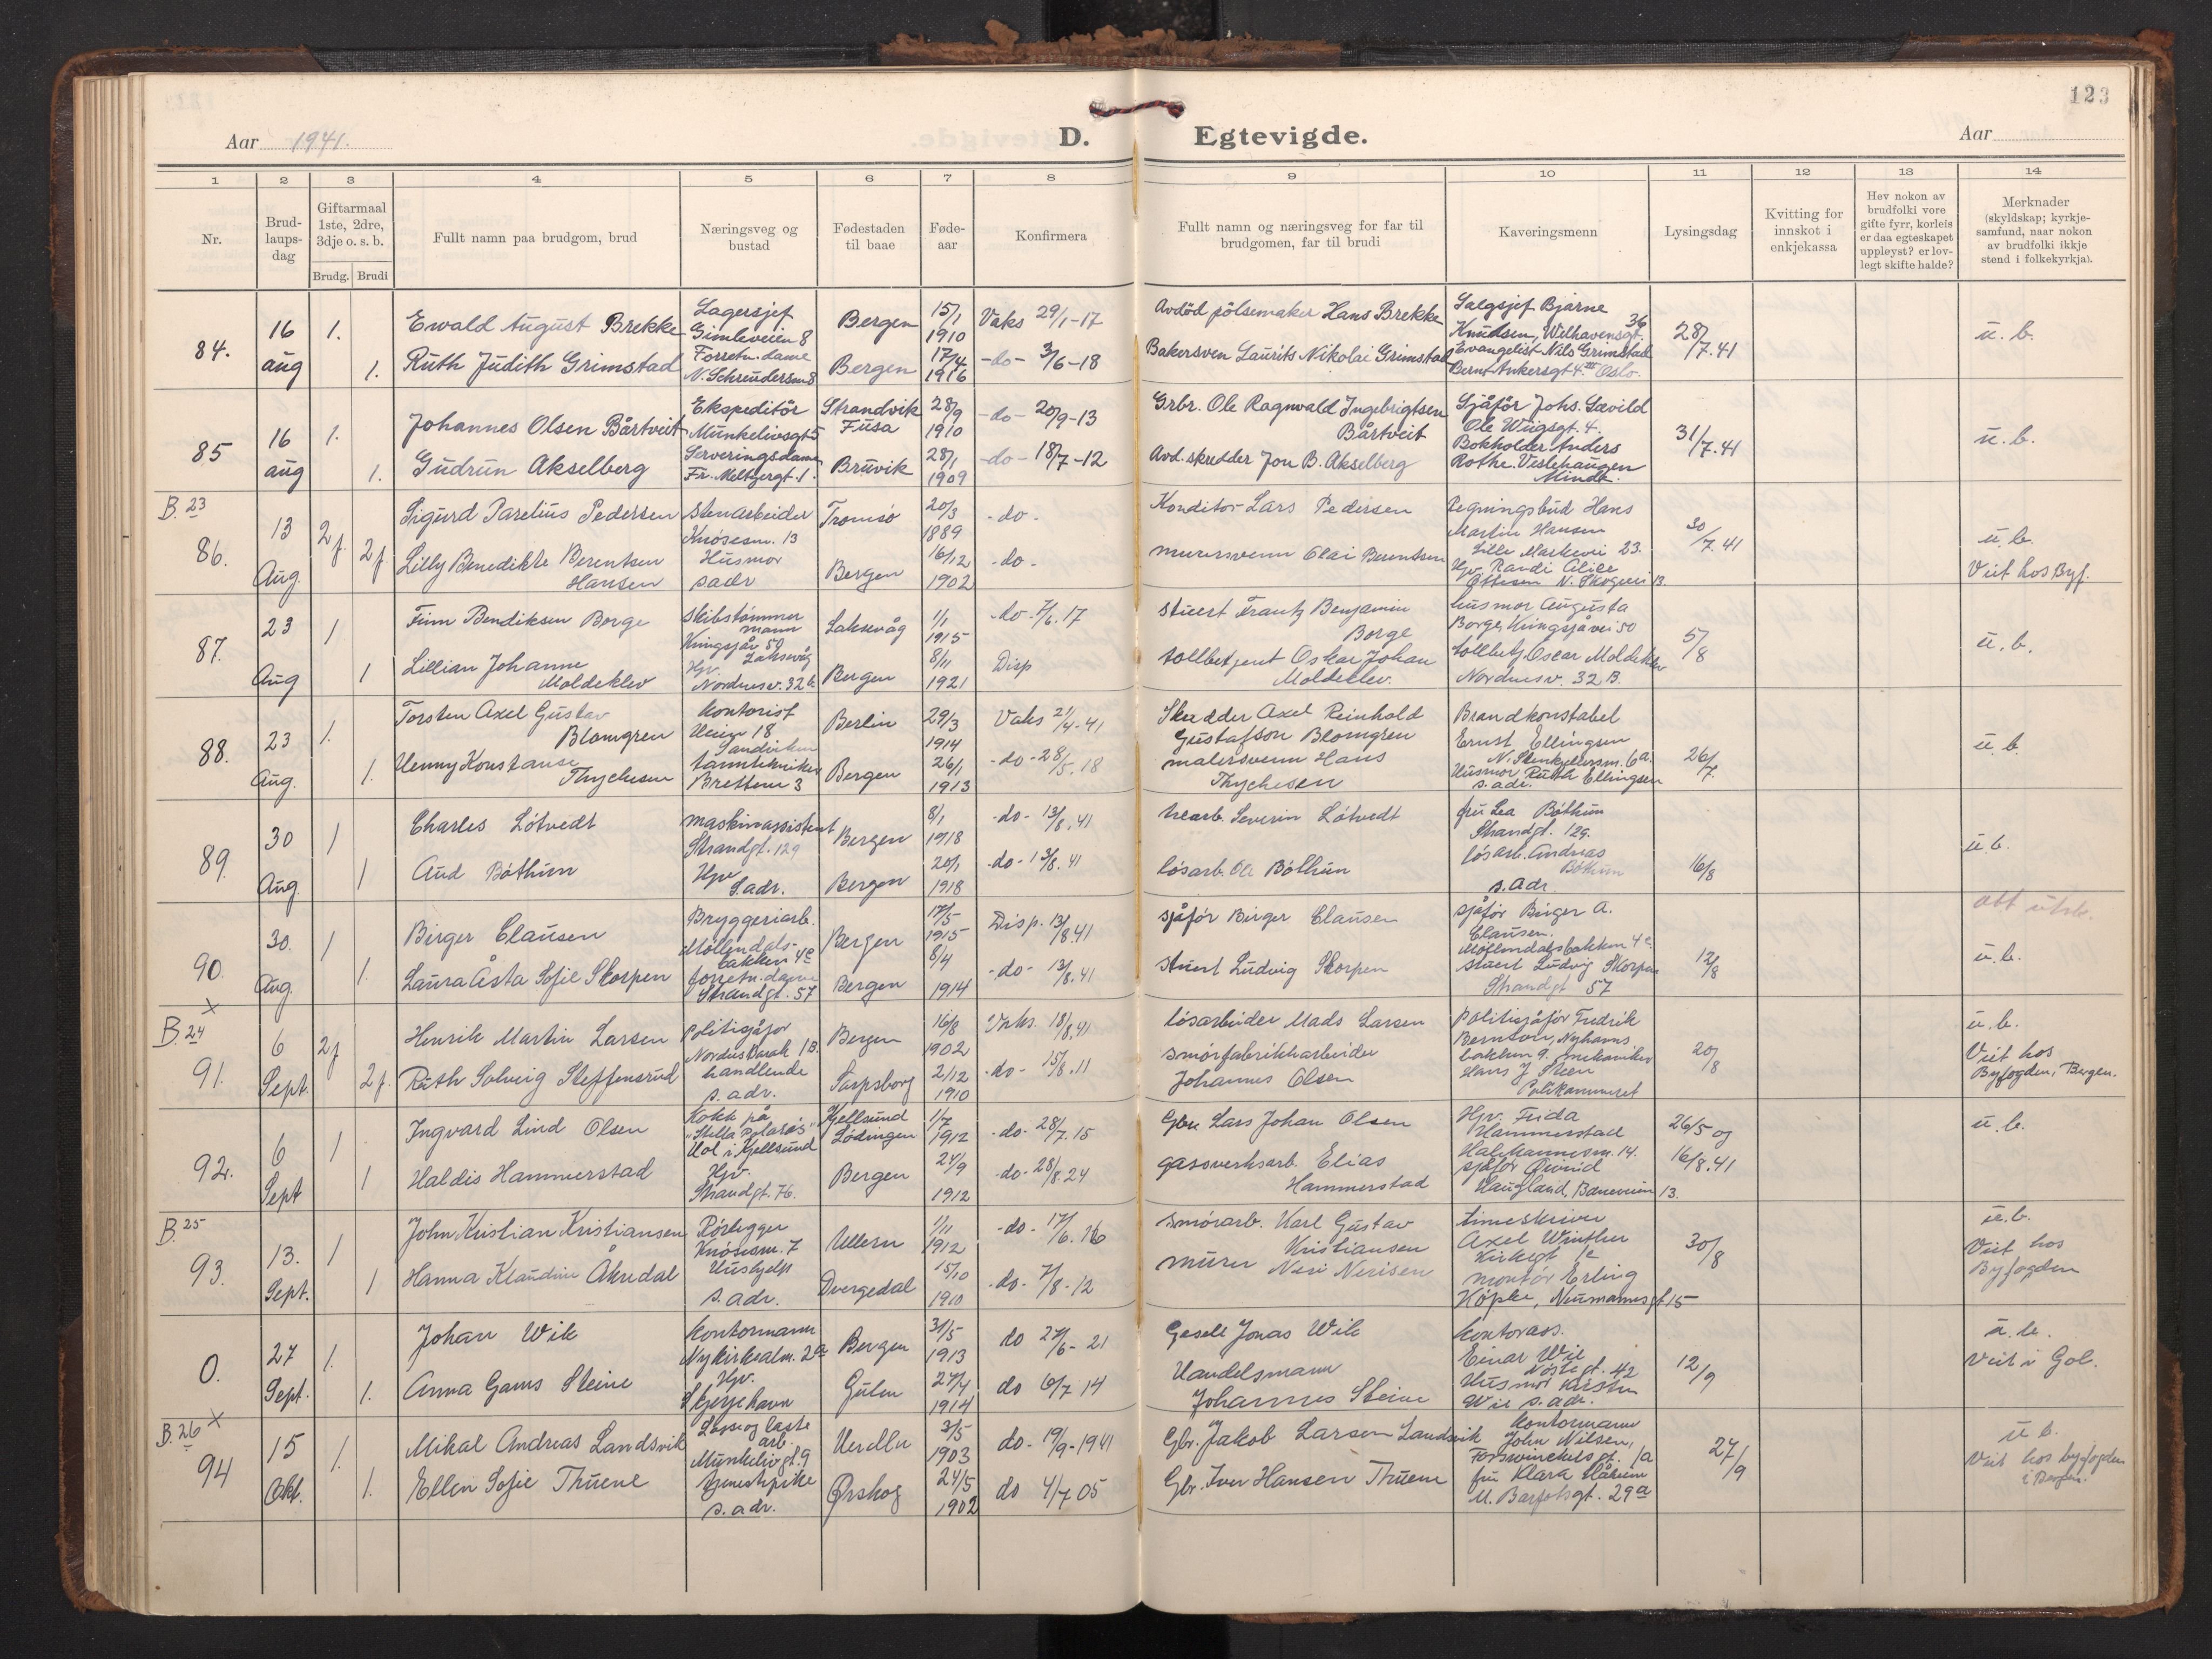 123
Aar 1941.
D. Egtevigde.
Aar
1 2 3 4 5 6 7 8 9 10 11 12 13 14
Nr.
Brud-
laups-
dag
Giftarmaal
1ste, 2dre,
3dje o. s. b.
Brudg. Brudi
Fullt namn paa brudgom, brud
Næringsveg og
bustad
Fødestaden
til baae
Føde-
aar
Konfirmera
Fullt namn og næringsveg for far til
brudgomen, far til brudi
Kaveringsmenn
Lysingsdag
Kvitting for
innskot i
enkjekassa
Hev nokon av
brudfolki vore
gifte fyrr, korleis
er daa egteskapet
uppleyst? er lov-
legt skifte halde?
Merknader
(skyldskap; kyrkje-
samfund, naar nokon
av brudfolki ikkje
stend i folkekyrkja).
84.
16
aug
1.
1.
Ewald August Brekke
Ruth Judith Grimstad
Lagersjef
Gimleveien 8
Forretn. dame
Bergen
Bergen
15/1
1910
17/4
1916
Vaks 29/1-17
-do- 3/6-18
Avdöd pölsemaker Hans Brekke
Bakersven Laurits Nikolai Grimstad
Salgsjef Bjarne
Knudsen, Welhavensgt. 36
Evangelist Nils Grimstad
Bernt Ankersgt 4.III Oslo.
28/7.41
u. b.
85
16
aug
1.
1.
Johannes Olsen Bårtveit
Gudrun Akselberg
Ekspeditör
Munkelivsgt 5
Serveringsdame
Fr. Meltzergt. 1.
Strandvik
Fusa
Bruvik
28/9
1910
28/1
1909
-do- 20/9-13
-do- 18/7-12
Grbr. Ole Ragnvald Ingebrigtsen
Bårtveit
Avd. skredder Jon B. Akselberg
Sjåför Johs. Sævild
Ole Wiigsgt. 4.
Bokholder Anders
Rothe. Veslehaugen
Minde.
31/7.41
u. b.
B. 23
86.
13
Aug.
2 f.
2 f.
Sigurd Parelius Pedersen
Lilly Benedikte Berentsen
Hansen
Stenarbeider
Knösesm. 13
Husmor
s adr
Tromsö
Bergen
20/3
1889
16/12
1902
-do-
-do-
Konditor Lars Pedersen
murersvenn Olai Berentsen
Regningsbud Hans
Martin Hansen
Lille Markevei 23.
Hjv. Randi Alice
Ottesen N. Skogvei 13.
30/7.41
u. b.
Viet hos Byf.
87.
23
Aug
1
1
Finn Bendiksen Borge
Lillian Johanne
Moldeklev
Skibstömmer
mann
Kringsjåv 50
Laksevåg
Hjv
Nordnesv. 32 b
Laksevåg
Bergen
1/1
1915
8/11
1921
-do- 7/6.17
Disp
stuert Frantz Benjamin
Borge
tollbetjent Oskar Johan
Moldeklev.
husmor Augusta
Borge, Kringsjåvei 50
tollbetj. Oscar Moldeklev
Nordnesv. 32 B.
5/8
u. b.
88.
23
Aug.
1.
1.
Torsten Axel Gustav
Blomgren
Henny Konstanse
Thychesen
Kontorist
Sandviken
tanntekniker
Berlin
Bergen
29/3
1914
26/1
1913
Vaks 21/4-41
-do- 28/5.18
Skredder Axel Reinhold
Gustafson Blomgren
malersvenn Hans
Thychesen
Brandkonstabel
Ernst Ellingsen
N. Stenkjellersm. 6a.
Husmor Ruth Ellingsen
s. adr.
26/7
u. b.
89.
30
Aug.
1
1
Charles Lötvedt
Aud Böthun
maskinassistent
Strandgt. 129
Hjv
S. adr.
Bergen
Bergen
8/1
1918
20/1
1918
-do- 13/8.41
-do- 13/8.41
trearb. Severin Lötvedt
lösarb. Ole Böthun
fru Lea Böthun
Strandgt. 129.
lösarb. Andreas
Böthun
s. adr.
16/8
u. b.
90.
30.
Aug.
1
1.
Birger Clausen
Laura Åsta Sofie Skorpen
Bryggeriarb.
Möllendals-
bakken 4c
forretn. dame
Strandgt. 57
Bergen
Bergen
17/5
1915
8/4
1914
Disp. 13/8.41
-do- 13/8.41
sjåför Birger Clausen
stuert Ludvig Skorpen
sjåför Birger A.
Clausen.
Möllendalsbakken 4c.
stuert Ludvig Skorpen
Strandgt 57
12/8
att utsk.
u. b.
B. 24 X
91.
6
Sept.
2 f
2 f.
Henrik Martin Larsen
Ruth Solveig Steffensrud
Politisjåför
handlende
s. adr.
Bergen
Sarpsborg
16/8
1902
2/12
1910
Vaks. 18/8.41
-do- 15/8.11
lösarbeider Mads Larsen
smörfabrikkarbeider
Johannes Olsen
Politisjåför Fredrik
Berntson, Nyhavns
bakken 9. mekaniker
Hans J Steen
Politikammeret
20/8
u. b.
Viet hos
Byfogden, Bergen.
92.
6
Sept
1
1
Ingvard Lind Olsen
Haldis Hammerstad
Kokk på
"Stella Polaris"
Hol i Kjellsund
Hjv.
Strandgt. 76.
Kjellsund
Lödingen
Bergen
1/7
1912
24/9
1912
-do- 28/7.15
-do- 28/8.24
Gbr. Lars Johan Olsen
gassverksarb. Elias
Hammerstad
Hjv. Frida
Hammerstad
14.
sjåför Øivind
Haugland, Baneveien 13.
26/5 og
16/8.41
u. b.
B. 25
93.
13.
Sept.
1
1
John Kristian Kristiansen
Hanna Klaudine Åkredal
Rörlegger
Knösesm. 7
Hushjelp
s. adr.
Ullern
Dvergedal
1/11
1912
15/10
1910
-do- 17/6.26
-do- 7/8-12
smörarb. Karl Gustav
Kristiansen
murer Neri Nerisen
timeskriver
Axel Winther
Kirkegt 1c
montör Erling
Höpke, Neumannsgt 15
30/8
u. b.
Viet hos
Byfogden
0.
27
Sept.
1.
1.
Johan Wik
Anna Gams Steine
Kontormann
Nykirkealm. 2a
Hjv.
Skjerjehavn
Bergen
Gulen
31/5
1913
27/4
1914
do 27/6-21
do 6/7 14
Gesell Jonas Wik
Handelsmann
Johannes Steine
Kontorass.
Einar Wik
Nöstegt. 42
Husmor Kristin
Wik s. adr.
12/9
u. b.
Viet i Gol.
B. 26 X
94
15
Okt.
1.
1.
Mikal Andreas Landsvik
Ellen Sofie Thuene
Losse og laste
arb.
Munkelivgt. 9
tjenestepike
s. adr.
Herdla
Ørskog
3/5
1903
24/5
1902
do- 19/9-1941
do 4/7 05
Gbr. Jakob Larsen Landsvik
Gbr. Iver Hansen Thuene
Kontormann
John Nilsen,
Forswinckelsgt. 1a
fru Klara Håkun
U. Barfotsgt. 29a
27/9
u b.
Viet hos byfogden
i Bergen.